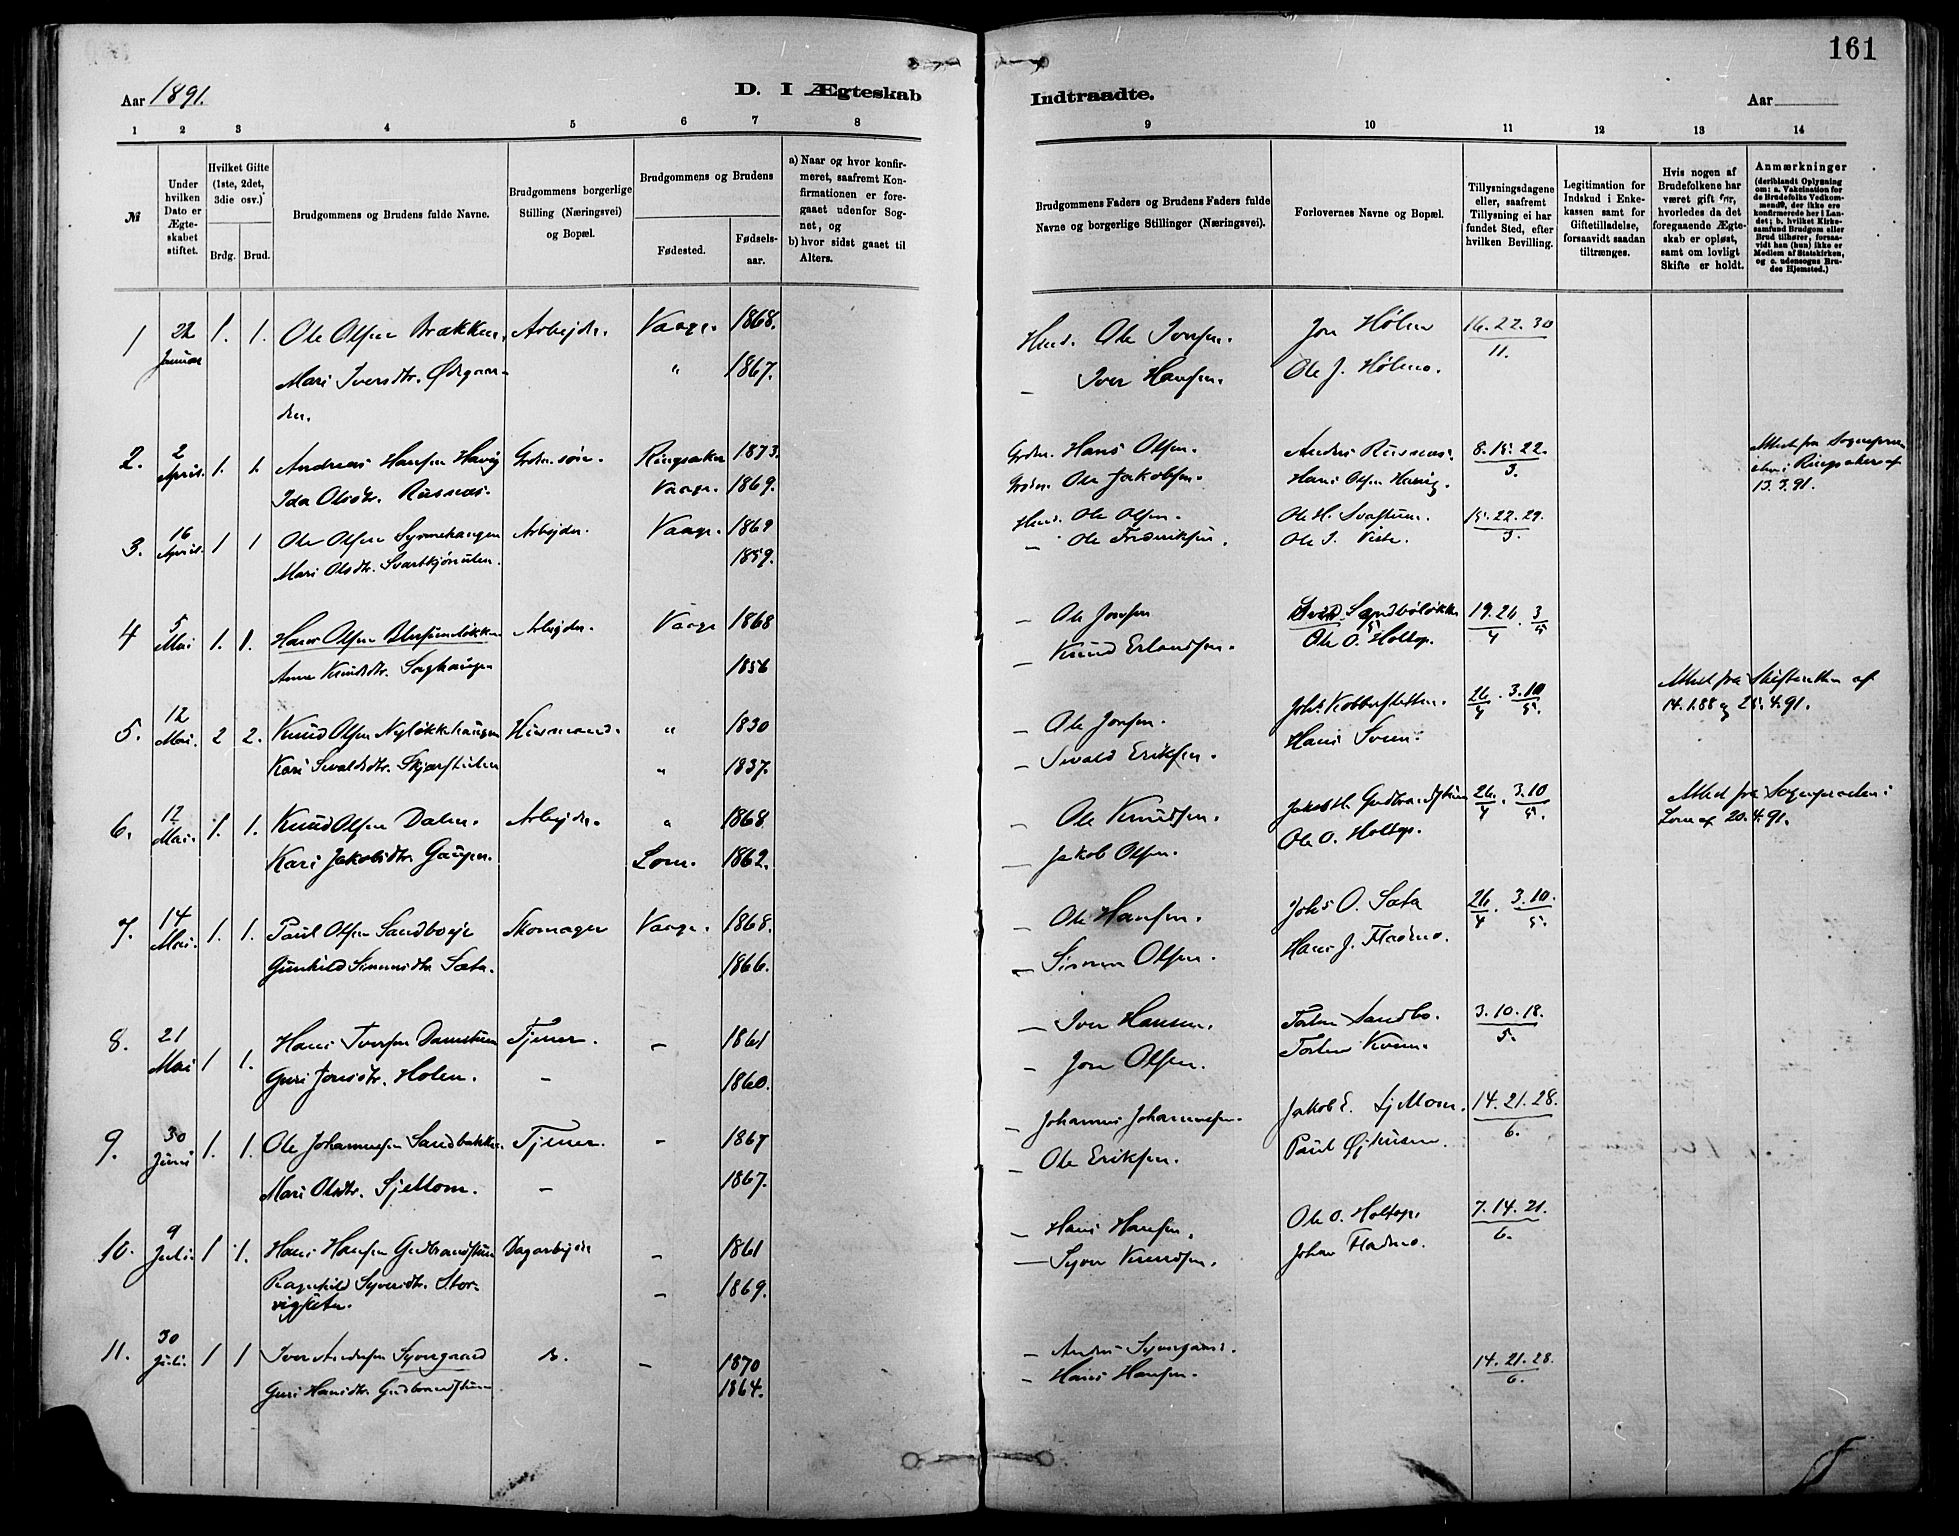 161
Aar 1891.
D. I Ægteskab
Indtraadte.
Aar
1 2 3 4 5 6 7 8
9 10 11 12 13 14
№
Under hvilken Dato er Ægteskabet stiftet.
Hvilket Gifte (1ste, 2det, 3die osv.)
Brdg. Brud.
Brudgommens og Brudens fulde Navne.
Brudgommens borgerlige Stilling (Næringsvei) og Bopæl.
Brudgommens og Brudens
Fødested.
Fødselsaar.
a) Naar og hvor konfirmeret, saafremt Konfirmationen er foregaaet udenfor Sognet, og
b) hvor sidst gaaet til Alters.
Brudgommens Faders og Brudens Faders fulde Navne og borgerlige Stillinger (Næringsvei).
Forlovernes Navne og Bopæl.
Tillysningsdagene eller, saafremt Tillysning ei har fundet Sted, efter hvilken Bevilling.
Legitimation for Indskud i Enkekassen samt for Giftetilladelse, forsaavidt saadan tiltrænges.
Hvis nogen af Brudefolkene har været gift før, hvorledes da det foregaaende Ægteskab er opløst, samt om lovligt Skifte er holdt.
Anmærkninger
(deriblandt Oplysning om: a. Vakcination for de Brudefolks Vedkommende, der ikke ere konfirmerede her i Landet; b. hvilket Kirkesamfund Brudgom eller Brud tilhører, forsaavidt han (hun) ikke er Medlem af Statskirken, og c. udensogns Brudes Hjemsted.)
1 22 Januar 1. 1. Ole Olsen Brækken. Arbejder. Vaage. 1868. Huus. Ole Jonsen. Jon Hølmo 16. 22. 30
Mari Iversdtr. Ødegaar- " 1867. – Iver Hansen. Ole J. Hølmo. 11.
den.
2. 2 April. 1. 1. Andreas Hansen Havig Grdm. søn. Ringsaker 1873. Grdm. Hans Olsen. Anders Rusnes. 8. 15. 22.
Ida Olsdtr. Rusnes. Vaage. 1869. Grdm. Ole Jakobsen. Hans Olsen Havig. 3.
Attest fra Sognepræsten i Ringsaker af
13.3.91.
3. 16 April. 1 1 Ole Olsen Arbejder. Vaage. 1869 Huus. Ole Olsen. Ole H. Svastum. 15. 22. 29.
Mari Olsdtr. 1859. – Ole Frederiksen. Ole I. Viste. 3.
4 5 Mai 1. 1. Hans Olsen Arbejder. Vaage 1868 – Ole Jonsen 19. 26. 3
Anne Knudsdtr. Soghaugen 1856 – Knud Erlandsen. Ole O. Holtop. 4 5
5. 12 Mai. 2 2. Knud Olsen Nyløkkhaugen Huusmand. " 1830 – Ole Jonsen. 26. 3. 10
Kari Sevaldsdtr. " 1837. – Sevald Eriksen. Hans Sveen. 4 5.
Attest fra Skifteretten af
14.1.88 og 25.4.91.
6. 12 Mai. 1. 1. Knud Olsen Dalen. Arbejder. " 1868. – Ole Knudsen. Jakob H. Gudbrandstuen 26. 3. 10
Kari Jakobsdtr. Gaupen. Lom. 1862. – Jakob Olsen. Ole O. Holtop. 4 5.
Attest fra Sognepræsten i
Lom af 20.4.91.
7. 14 Mai. 1. 1. Paul Olsen Sandboeje Skomager Vaage. 1868. – Ole Hansen. Johs O. Sata 26. 3. 10.
Gunhild Simensdtr. Sata. 1866. – Simen Olsen. Hans J. Fladmo. 4 5.
8. 21 Mai 1 1. Hans Iversen Tjener. – 1861 – Iver Hansen. Torsten Sandbo. 3. 10. 18.
Guri Jonsdtr. Holen. – 1860. – Jon Olsen. Torsten Kveen. 5.
9. 30 Juni 1. 1. Ole Johannesen Sandbakken. Tjener. – 1867 – Johannes Johannesen. Jakob E. Sjellom. 14. 21. 28.
Mari Olsdtr. Sjellom. – 1867. – Ole Eriksen. Paul 6.
10. 9 Juli. 1 1. Hans Hansen Gudbrandstuen Dagarbejder – 1861 – Hans Hansen. Ole O. Holtop. 7. 14. 21.
Ragnhild Syversdtr. Stor- – 1869. – Syver Knudsen. Johan Fladmo. 6.
vigsæter.
11. 30 Juli. 1 1 Iver Andersen Syvergaard do. – 1870 – Anders Syvergaard. 14. 21. 28.
Guri Hansdtr. Gudbrandstuen 1864. – Hans Hansen. 6.